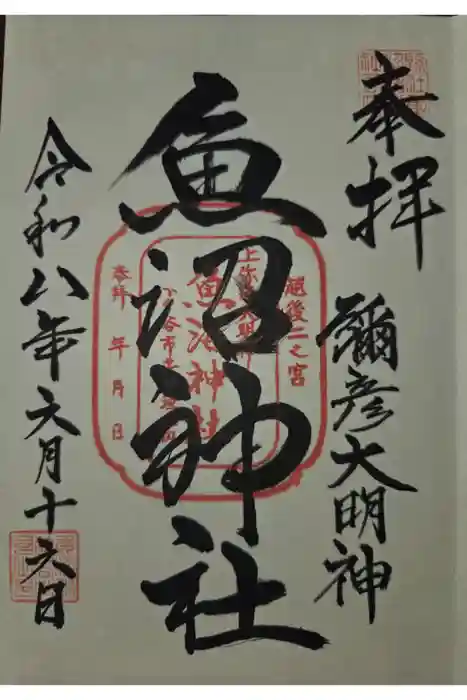 奉拝
彌彦大明神
魚沼神社
令和八年六月十六日
越後二之宮
魚沼神社
参拝 年 月 日